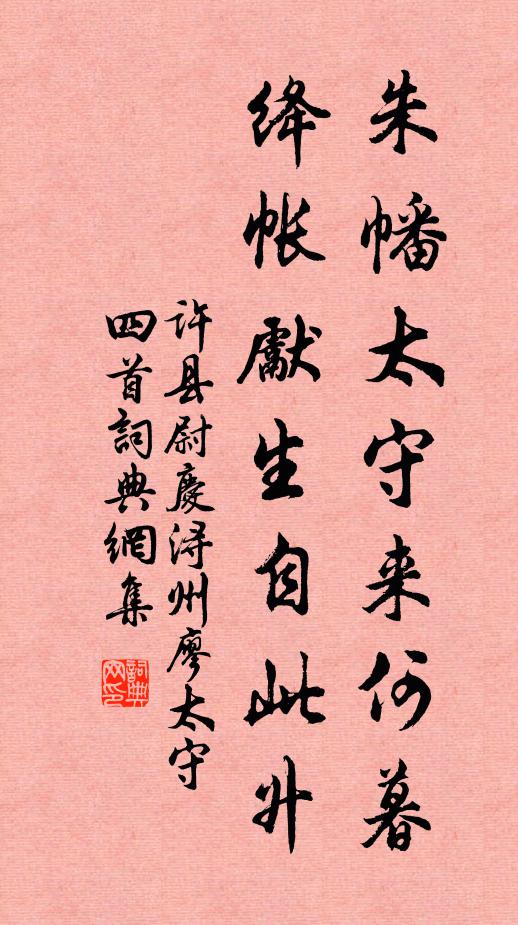 朱幡太守来何暮
绛帐獻生自此升
许县尉慶浔州廖太守
四首詞典網集
詞典网印